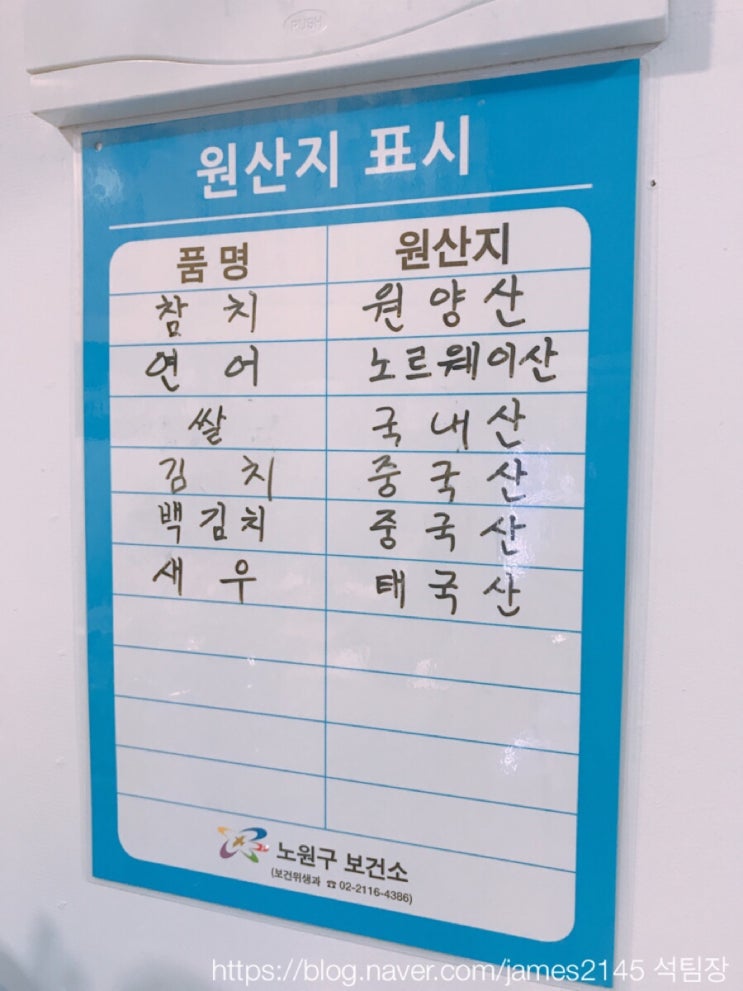 PUSH
원산지 표시
품명 원산지
참치 원양산
연어 노르웨이산
쌀 국내산
김치 중국산
백김치 중국산
새우 태국산
노원구 보건소
(보건위생과 ☎ 02-2116-4386)
https://blog.naver.com/james2145 석팀장